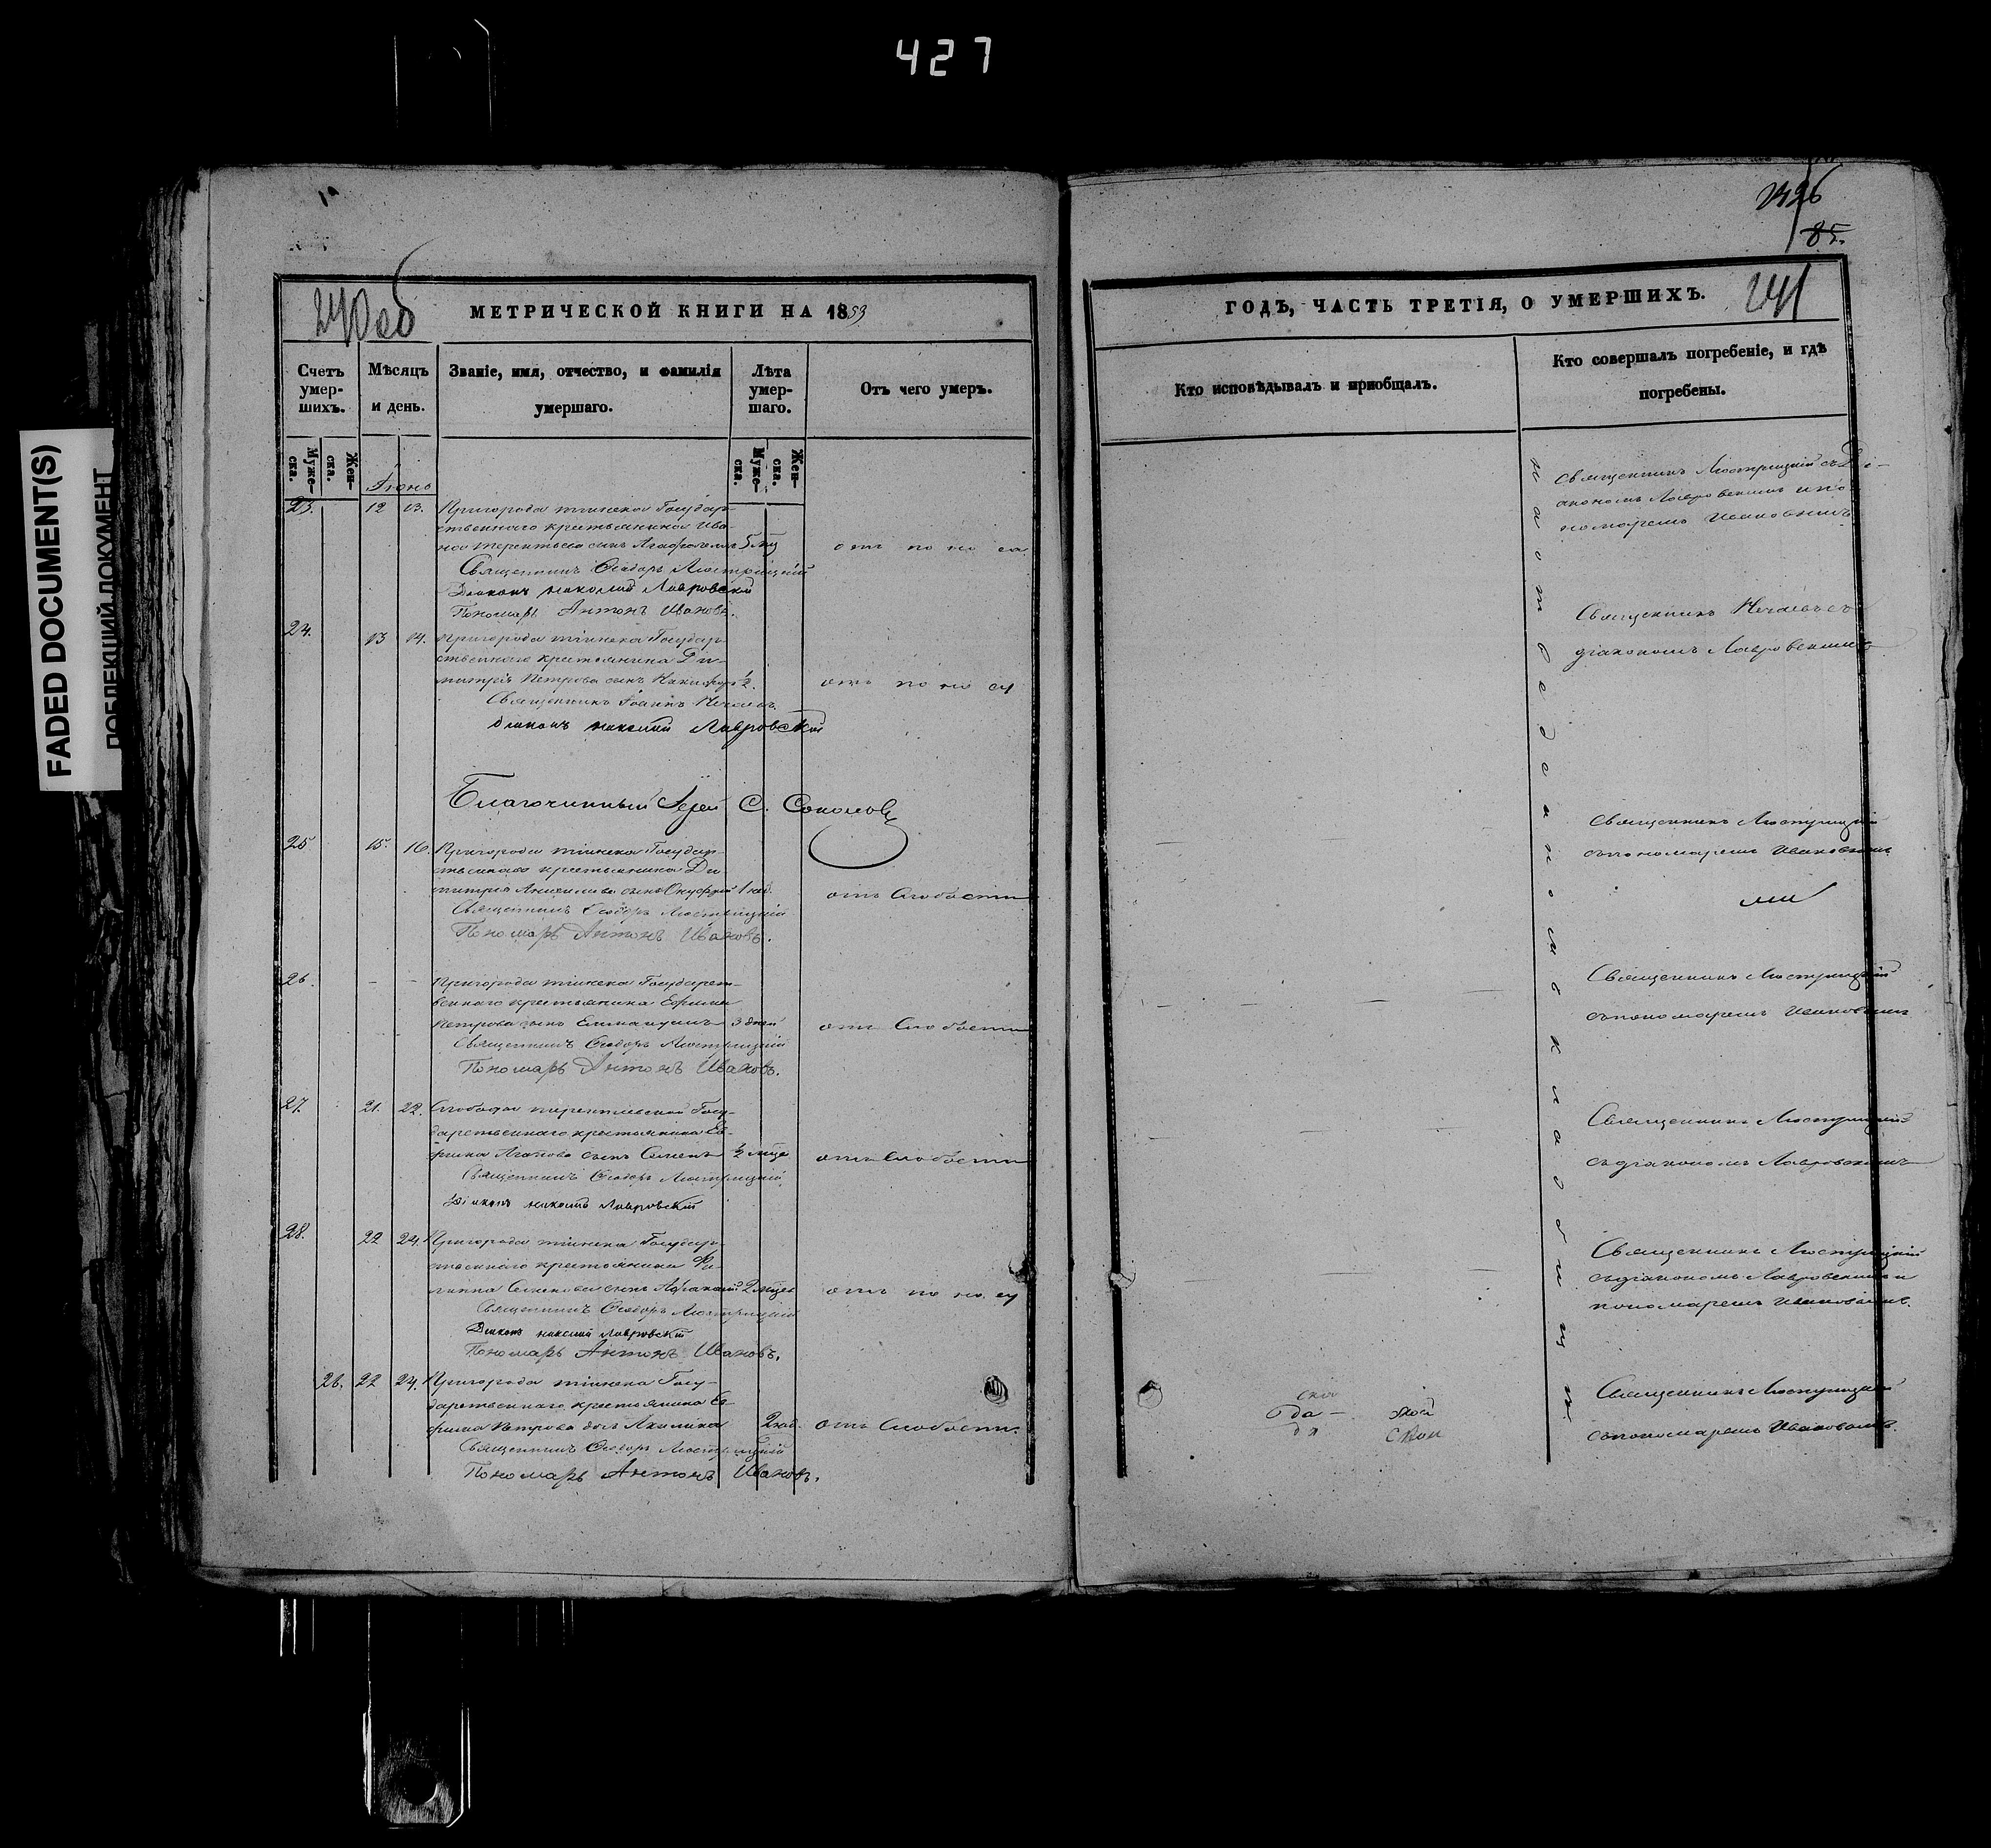 427
FADED DOCUMENT(S)
ПОБЛЕКШИЙ ДОКУМЕНТ
МЕТРИЧЕСКОЙ КНИГИ НА 1853
Счетъ умер-шихъ.
Муже-ска.
Жен-ска.
Мѣсяцъ и день.
Званіе, имя, отчество, и фамилія умершаго.
Лѣта умер-шаго.
Муже-ска.
Жен-ска.
Отъ чего умеръ.
Іюнь
23. 12 13. Пригорода Тіинска Государ-
ственнаго крестьянина Ива-
на Терентьева сынъ 5 мц отъ поноса
Священникъ Ѳеодоръ Люстрицкій
Діаконъ Николай Лавровскій
Пономарь Антонъ Ивановъ.
24. 13 14. Пригорода Тіинска Государ-
ственнаго крестьянина Ди-
митрія Петрова сынъ отъ поносу
Священникъ Іоаннъ Нечаевъ
Діаконъ Николай Лавровскій
Благочинный Іерей С. Соколовъ
25 15. 16. Пригорода Тіинска Государ-
ственнаго крестьянина Ди-
митрія сынъ Онуфрій 1 нед. отъ слабости
Священникъ Ѳеодоръ Люстрицкій
Пономарь Антонъ Ивановъ.
26. - - Пригорода Тіинска Государст-
веннаго крестьянина Ефима
Петрова сынъ Еммануилъ 3 дней отъ слабости
Священникъ Ѳеодоръ Люстрицкій
Пономарь Антонъ Ивановъ.
27. 21. 22. Слободы Госу-
дарственнаго крестьянина Ев-
Агапова сынъ Семенъ ½ мца отъ слабости
Священникъ Ѳеодоръ Люстрицкій
Діаконъ Николай Лавровскій
28. 22 24. Пригорода Тіинска Государ-
ственнаго крестьянина Фи-
липпа Семенова сынъ Аѳанасій 2 мцев отъ поносу
Священникъ Ѳеодоръ Люстрицкій
Діаконъ Николай Лавровскій
Пономарь Антонъ Ивановъ.
26. 22 24. Пригорода Тіинска Госу-
дарственнаго крестьянина Еѳ-
фима Петрова дочь Акилина 2 нед. отъ слабости.
Священникъ Ѳеодоръ Люстрицкій
Пономарь Антонъ Ивановъ.
85.
241
ГОДЪ, ЧАСТЬ ТРЕТІЯ, О УМЕРШИХЪ.
Кто исповѣдывалъ и пріобщалъ.
Кто совершалъ погребеніе, и гдѣ погребены.
на отведенномъ кладбищѣ.
Священникъ Люстрицкій съ Ді-
акономъ Лавровскимъ и по
номаремъ Ивановымъ
Священникъ Нечаевъ съ
діакономъ Лавровскимъ
Священникъ Люстрицкій
съ пономаремъ Ивановымъ
Священникъ Люстрицкій
съ пономаремъ Ивановымъ
Священникъ Люстрицкій
съ діакономъ Лавровскимъ
Священникъ Люстрицкій
съ діакономъ Лавровскимъ и
пономаремъ Ивановымъ.
Священникъ Люстрицкій
съ пономаремъ Ивановымъ.